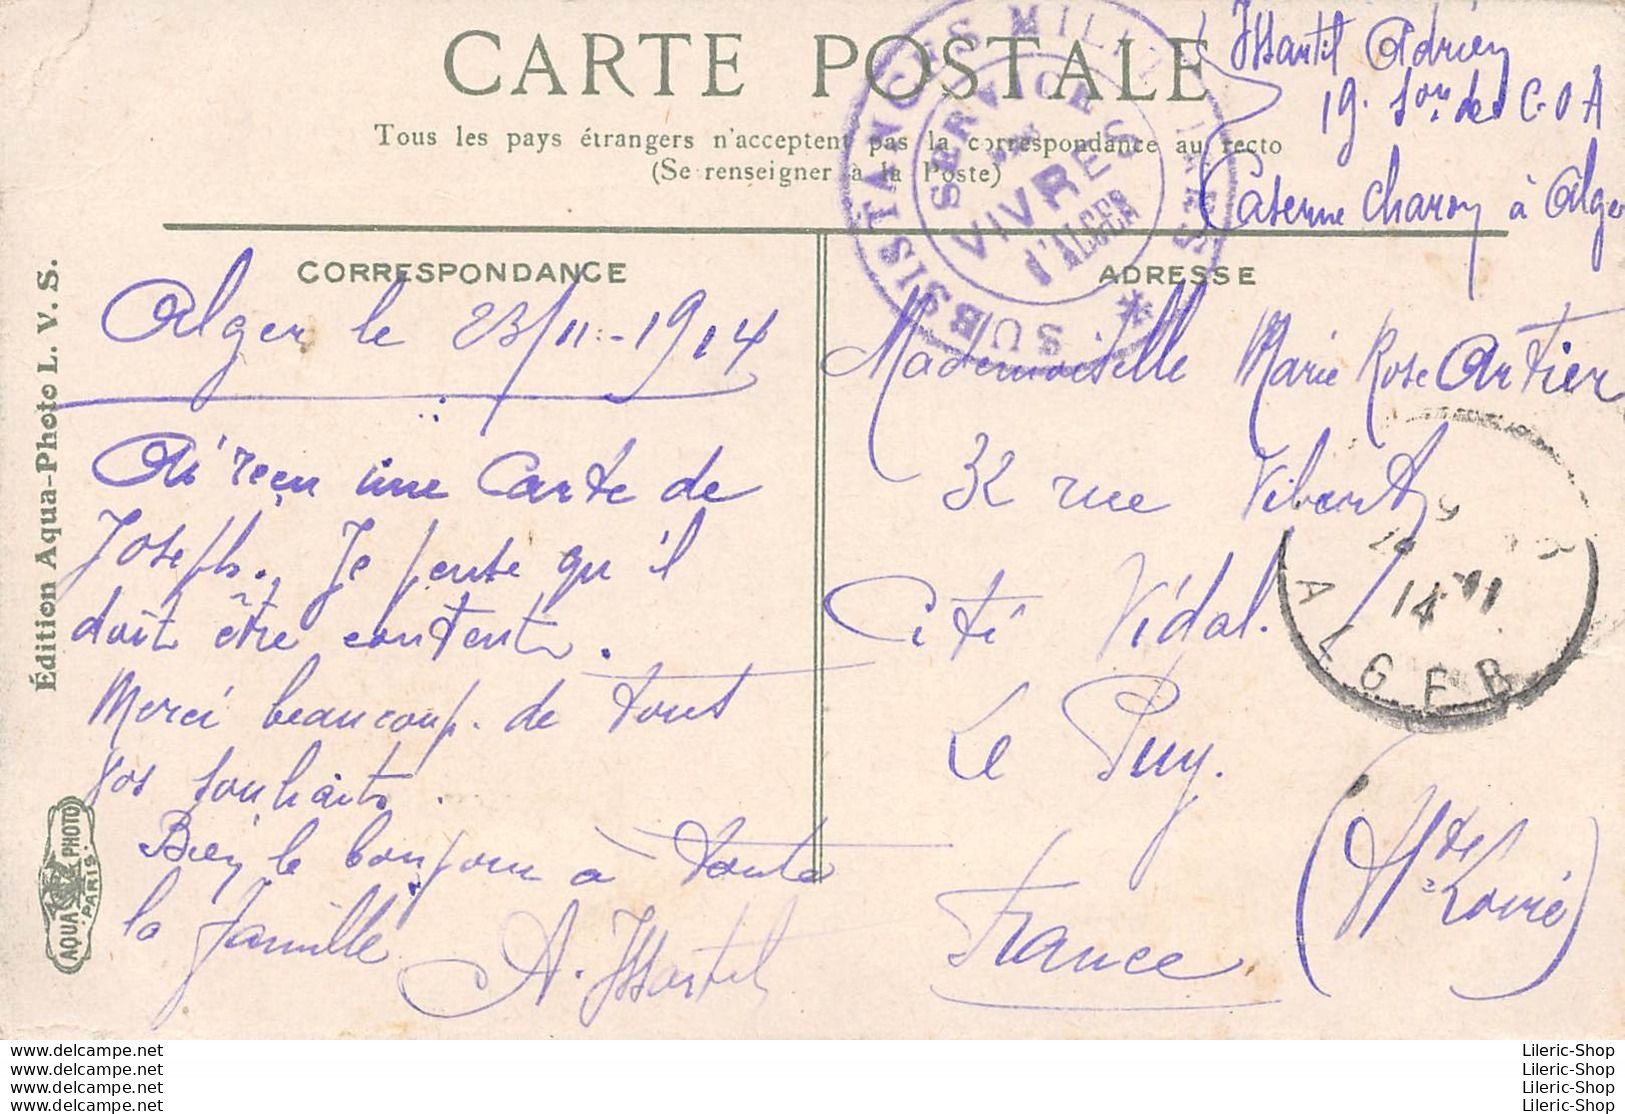 CARTE POSTALE
Tous les pays étrangers n'acceptent pas la correspondance au recto
(Se renseigner à la Poste)
SUBSISTANCES MILITAIRES
SERVICE
VIVRES
d'ALGER
Adrien
19. Son des C.O.A
Caserne Charon à Alger
CORRESPONDANCE
Alger le 23/11-1914
Ai reçu une Carte de
Joseph. Je pense qu'il
doit être content.
Merci beaucoup de tous
vos souhaits.
Bien le bonjour à toute
la famille
A.
ADRESSE
Mademoiselle Marie Rose Artier
32 rue Vibert
Cité Vidal.
Le Puy.
(Hte Loire)
France
ALGER
14
Édition Aqua-Photo L. V. S.
AQUA PHOTO
PARIS
www.delcampe.net
www.delcampe.net
www.delcampe.net
www.delcampe.net
Lileric-Shop
Lileric-Shop
Lileric-Shop
Lileric-Shop